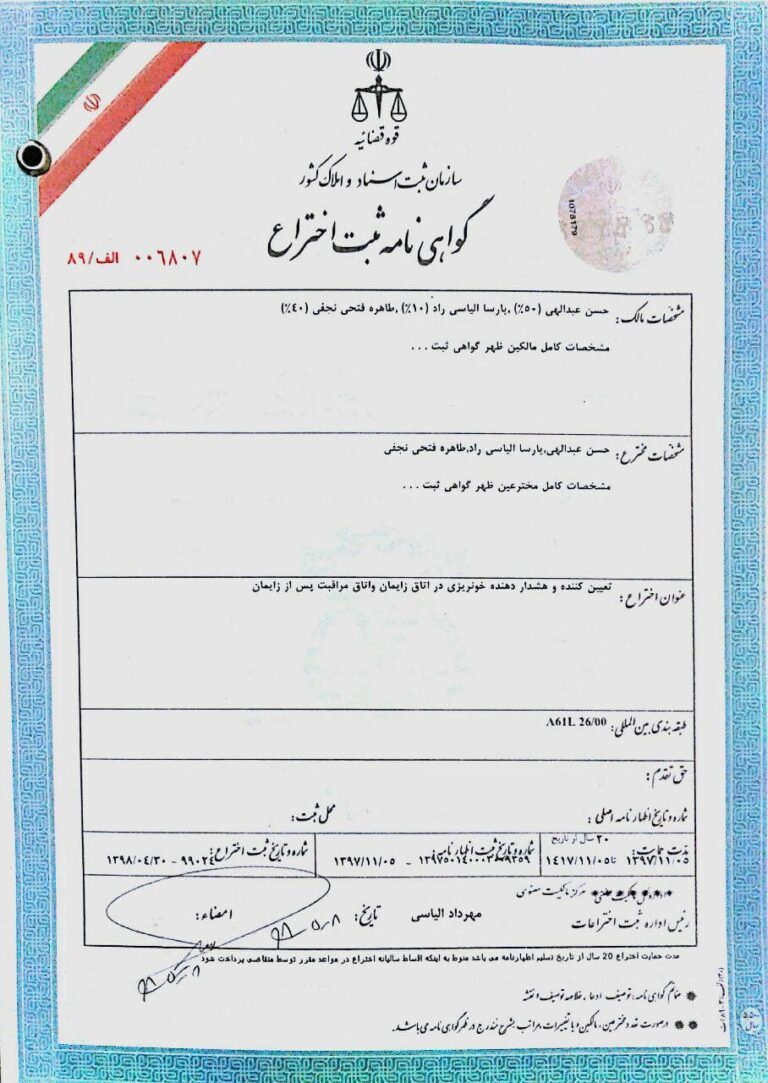 قوه قضائیه
سازمان ثبت اسناد و املاک کشور
گواهی نامه ثبت اختراع
1078179
۰۰۶۸۰۷ الف/۸۹
مشخصات مالک: حسن عبدالهی (۵۰٪) ,پارسا الیاسی راد (۱۰٪) ,طاهره فتحی نجفی (۴۰٪)
مشخصات کامل مالکین ظهر گواهی ثبت ...
مشخصات مخترع: حسن عبدالهی,پارسا الیاسی راد,طاهره فتحی نجفی
مشخصات کامل مخترعین ظهر گواهی ثبت ...
عنوان اختراع: تعیین کننده و هشدار دهنده خونریزی در اتاق زایمان واتاق مراقبت پس از زایمان
طبقه بندی بین المللی: A61L 26/00
حق تقدم:
شماره و تاریخ اظهارنامه اصلی: محل ثبت:
مدت حمایت: ۲۰ سال از تاریخ
۱۳۹۷/۱۱/۰۵ تا ۱۴۱۷/۱۱/۰۵
شماره و تاریخ ثبت اظهارنامه:
۱۳۹۷/۱۱/۰۵
شماره و تاریخ ثبت اختراع:
۹۹۰۲۴ - ۱۳۹۸/۰۴/۳۰
مرکز مالکیت معنوی
رئیس اداره ثبت اختراعات مهرداد الیاسی تاریخ: امضاء:
مدت حمایت اختراع 20 سال از تاریخ تسلیم اظهارنامه می باشد منوط به اینکه اقساط سالیانه اختراع در مواعد مقرر توسط متقاضی پرداخت شود
منضم گواهی نامه: توصیف، ادعا، خلاصه توصیف و نقشه
درصورت تعدد مخترعین، مالکین و یا تغییرات، مراتب بشرح مندرج در ظهر گواهی نامه می باشد.